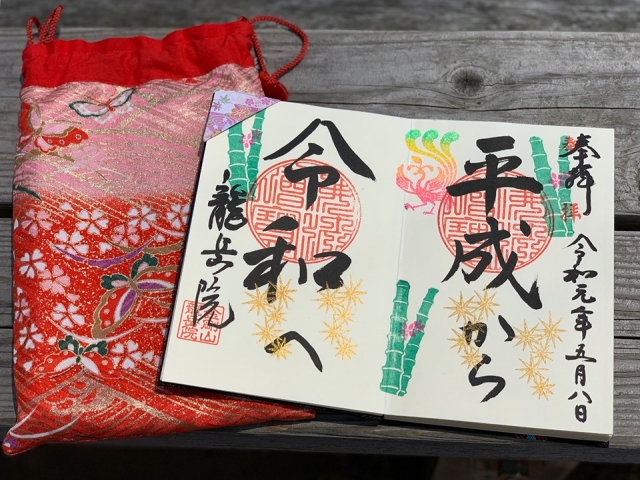 奉拝
令和元年五月八日
平成から
令和へ
龍岳院